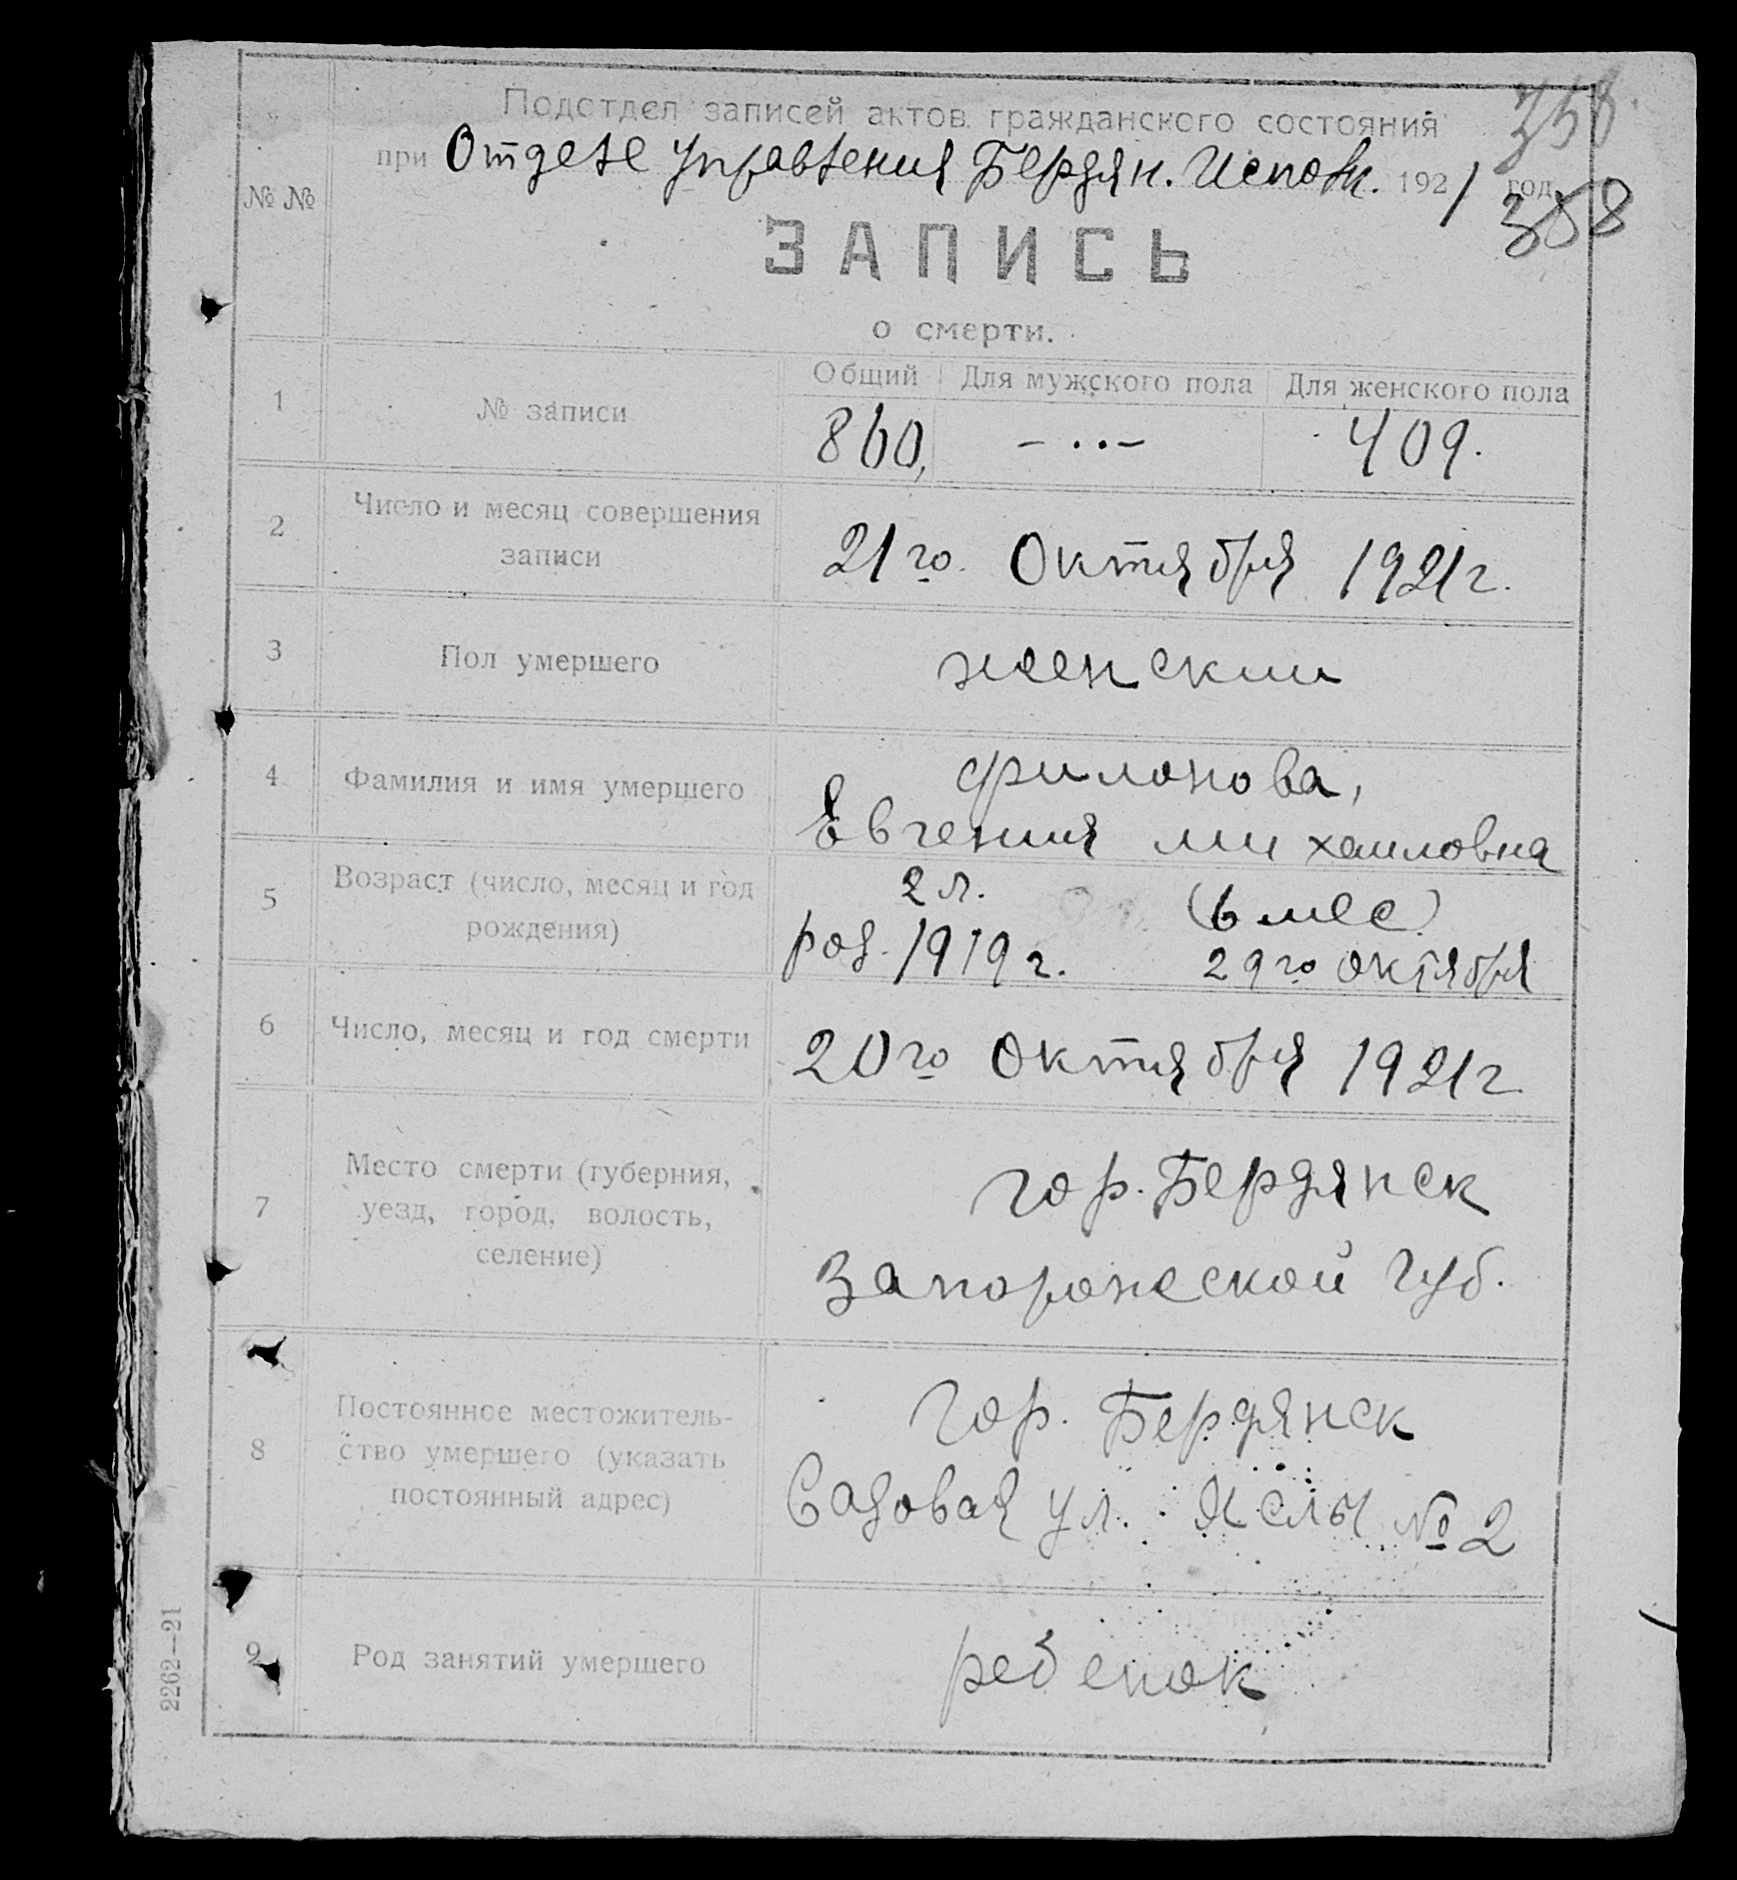 358.
Подотдел записей актов гражданского состояния
при Отделе Управления Бердян. Исполк. 1921 год
358
№ №
ЗАПИСЬ
о смерти.
1 № записи
Общий Для мужского пола Для женского пола
860, – .. – 409.
2 Число и месяц совершения
записи
21го Октября 1921г.
3 Пол умершего
женский
4 Фамилия и имя умершего
Филонова,
Евгения Михаиловна
5 Возраст (число, месяц и год
рождения)
2 л. (6 мес)
род. 1919 г. 29го октября
6 Число, месяц и год смерти
20го Октября 1921г
7 Место смерти (губерния,
уезд, город, волость,
селение)
гор. Бердянск
Запорожской Губ.
8 Постоянное местожитель-
ство умершего (указать
постоянный адрес)
Гор. Бердянск
Садовая ул. Ясли № 2
9 Род занятий умершего
ребенок
2262—21